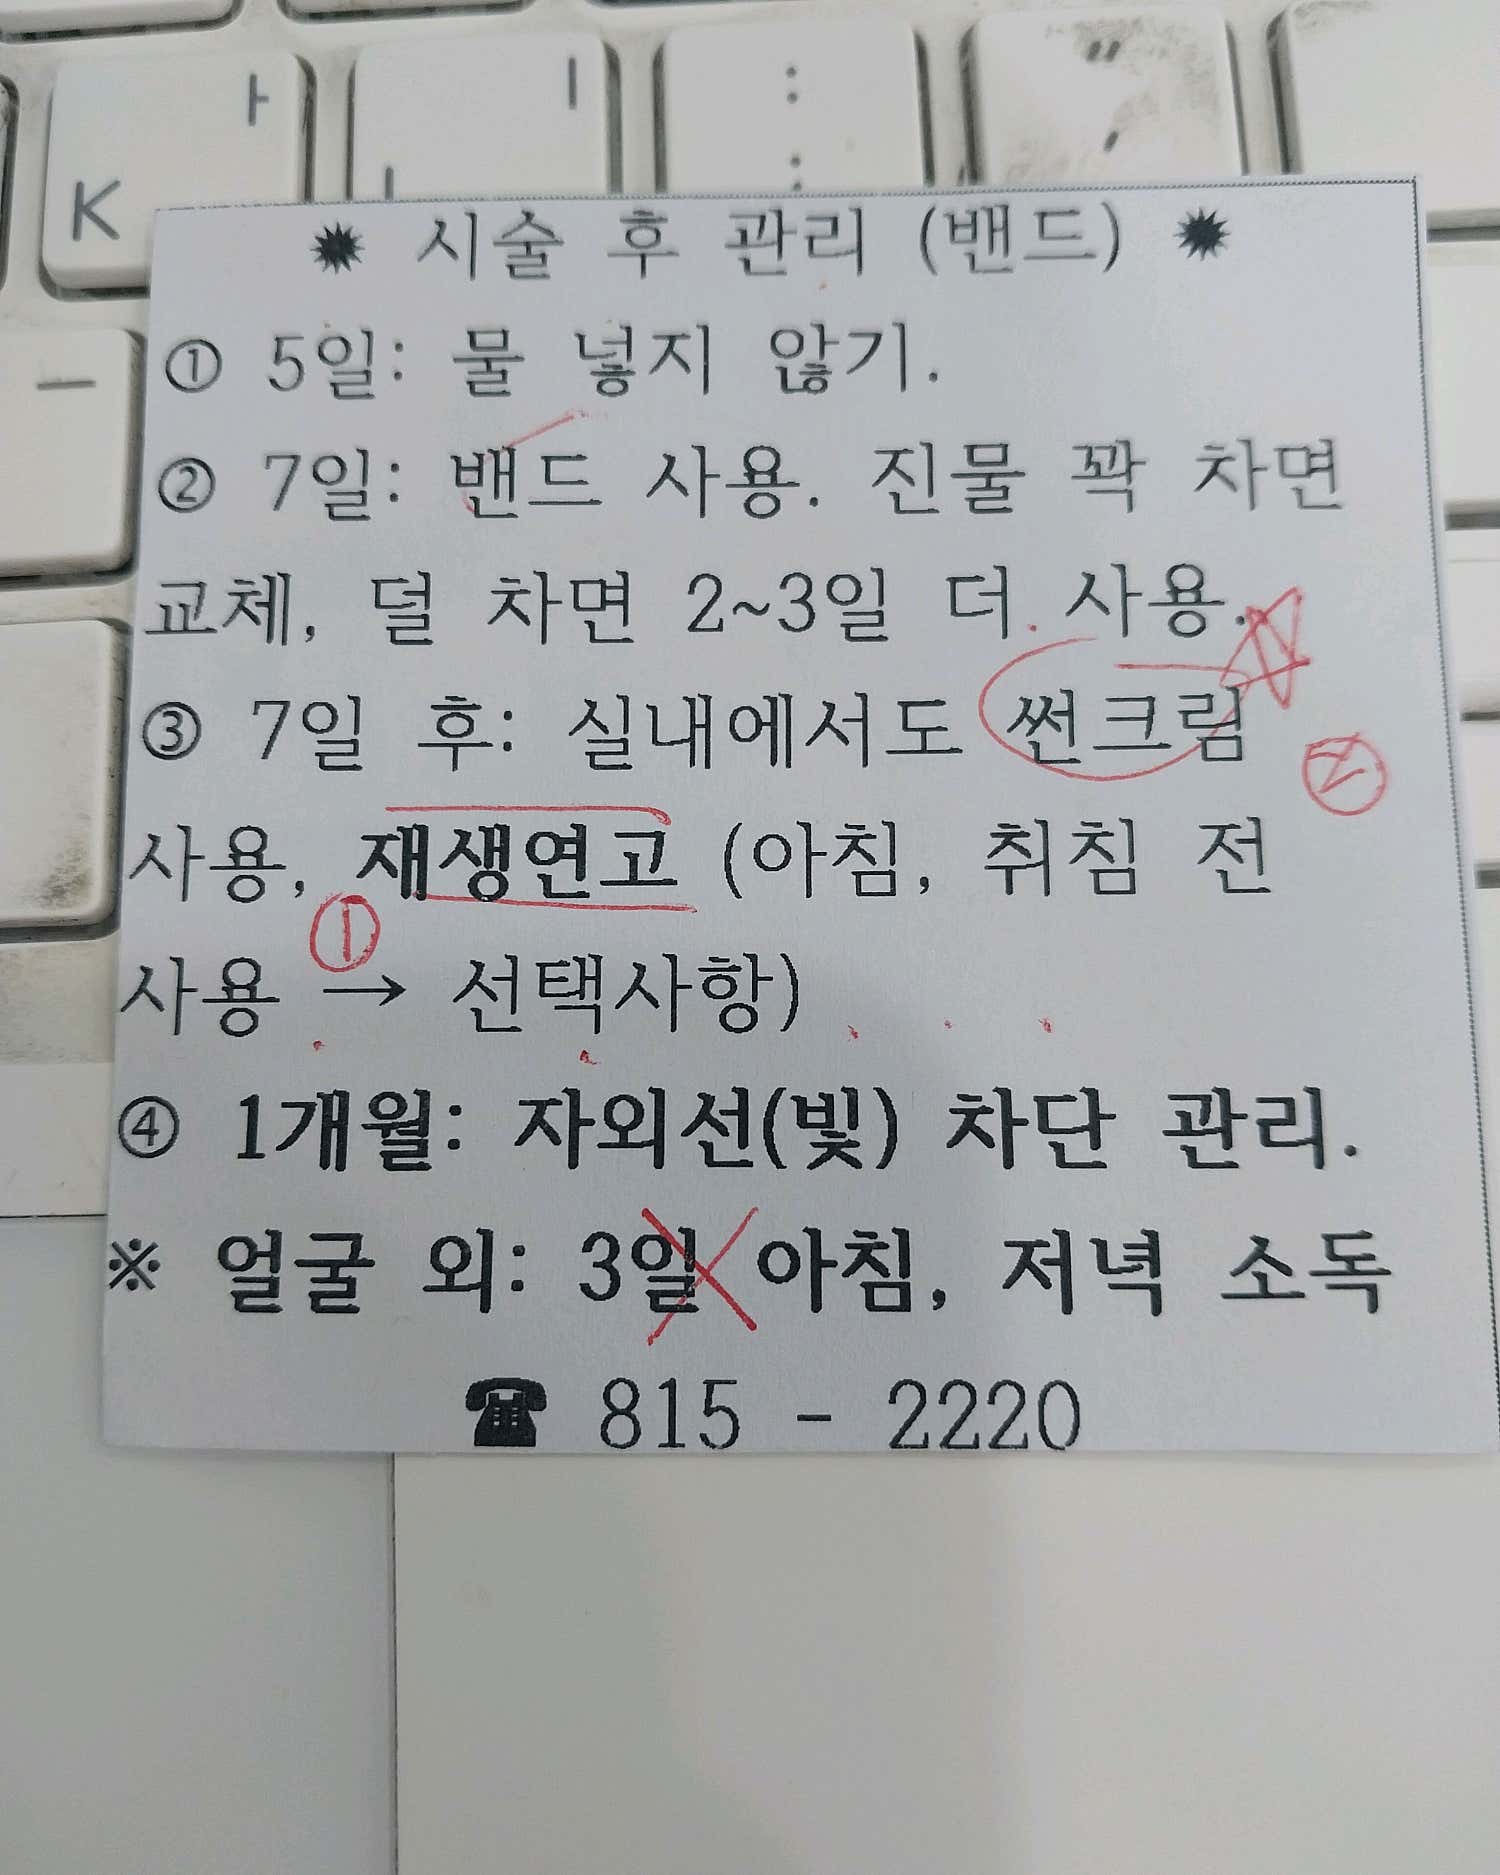 ㅏ ㅣ : "
K L ; '
ㅡ
✹ 시술 후 관리 (밴드) ✹
① 5일: 물 넣지 않기.
② 7일: 밴드 사용. 진물 꽉 차면
교체, 덜 차면 2~3일 더 사용.
③ 7일 후: 실내에서도 썬크림
②
사용, 재생연고 (아침, 취침 전
①
사용 → 선택사항)
④ 1개월: 자외선(빛) 차단 관리.
※ 얼굴 외: 3일 아침, 저녁 소독
☎ 815 - 2220